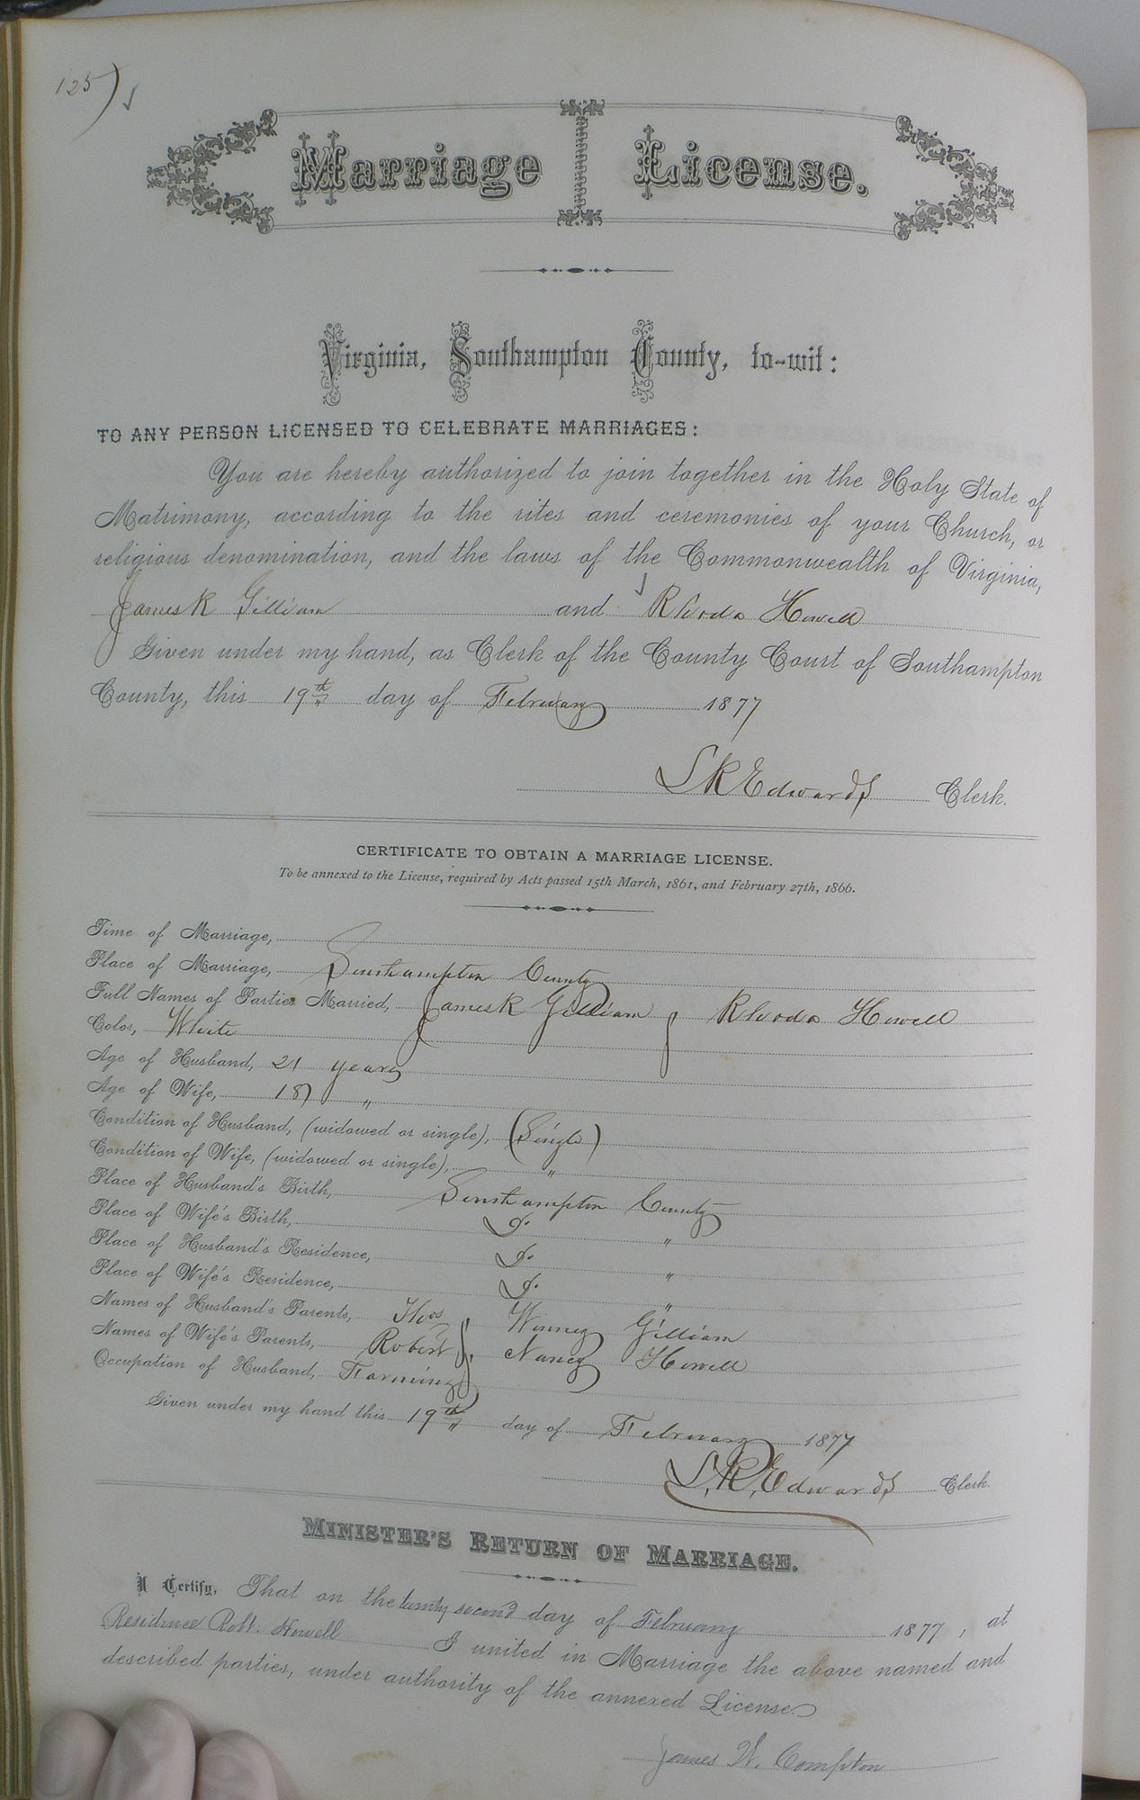 125)
Marriage License.
Virginia, Southampton County, to-wit:
TO ANY PERSON LICENSED TO CELEBRATE MARRIAGES:
You are hereby authorized to join together in the Holy State of
Matrimony, according to the rites and ceremonies of your Church, or
religious denomination, and the laws of the Commonwealth of Virginia,
James R Gilliam and Rhoda Howell
Given under my hand, as Clerk of the County Court of Southampton
County, this 19th day of February 1877
L R Edwards Clerk.
CERTIFICATE TO OBTAIN A MARRIAGE LICENSE.
To be annexed to the License, required by Acts passed 15th March, 1861, and February 27th, 1866.
Time of Marriage,
Place of Marriage, Southampton County
Full Names of Parties Married, James R Gilliam, Rhoda Howell
Color, White
Age of Husband, 21 years
Age of Wife, 18 "
Condition of Husband, (widowed or single), (Single)
Condition of Wife, (widowed or single), "
Place of Husband's Birth, Southampton County
Place of Wife's Birth, Do "
Place of Husband's Residence, Do "
Place of Wife's Residence, Do "
Names of Husband's Parents, Thos, Winney Gilliam
Names of Wife's Parents, Robert, Nancy Howell
Occupation of Husband, Farming
Given under my hand this 19th day of February 1877
L. R. Edwards Clerk.
MINISTER'S RETURN OF MARRIAGE.
I Certify, That on the twenty second day of February 1877, at
Residence Robt. Howell I united in Marriage the above named and
described parties, under authority of the annexed License.
James W. Compton